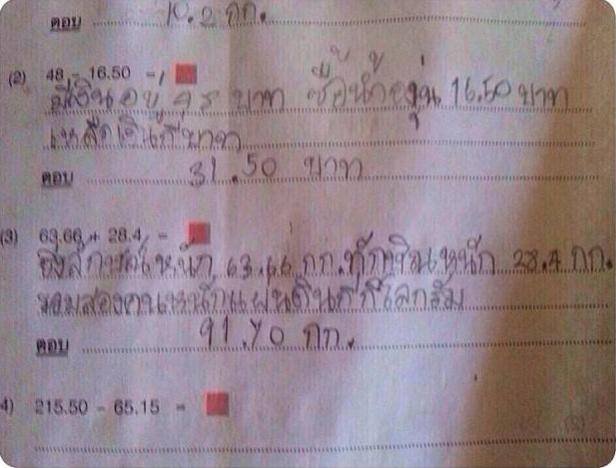 ตอบ 10.2 กก.
(2) 48 - 16.50 =
มีเงินอยู่ 48 บาท ซื้อน้ำองุ่น 16.50 บาท
เหลือเงินกี่บาท
ตอบ 31.50 บาท
(3) 63.66 + 28.4 =
หนัก 63.66 กก. ทักษิณหนัก 28.4 กก.
รวมสองคนหนักแผ่นดินกี่กิโลกรัม
ตอบ 91.70 กก.
4) 215.50 - 65.15 =